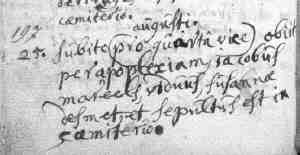 cæmiterio.
augusti.
25. subito (pro quarta vice) obiit
per apoplexiam Jacobus
viduus susannæ
desmetzet sepultus est in
cæmiterio